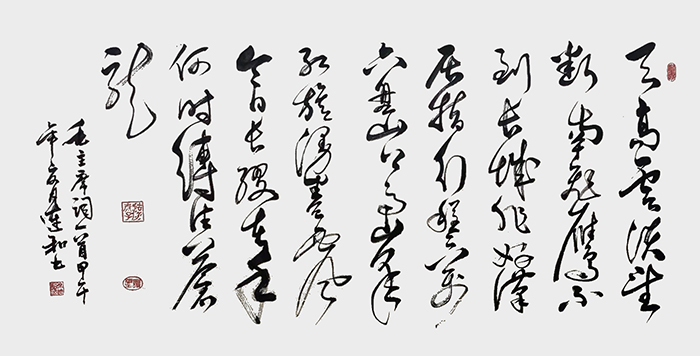 天高雲淡望
断南飛雁不
到长城非好漢
屈指行程二万
六盘山上高峯
红旗漫卷西风
今日长缨在手
何时縛住蒼
龙
毛主席词一首甲午
年 月连和书